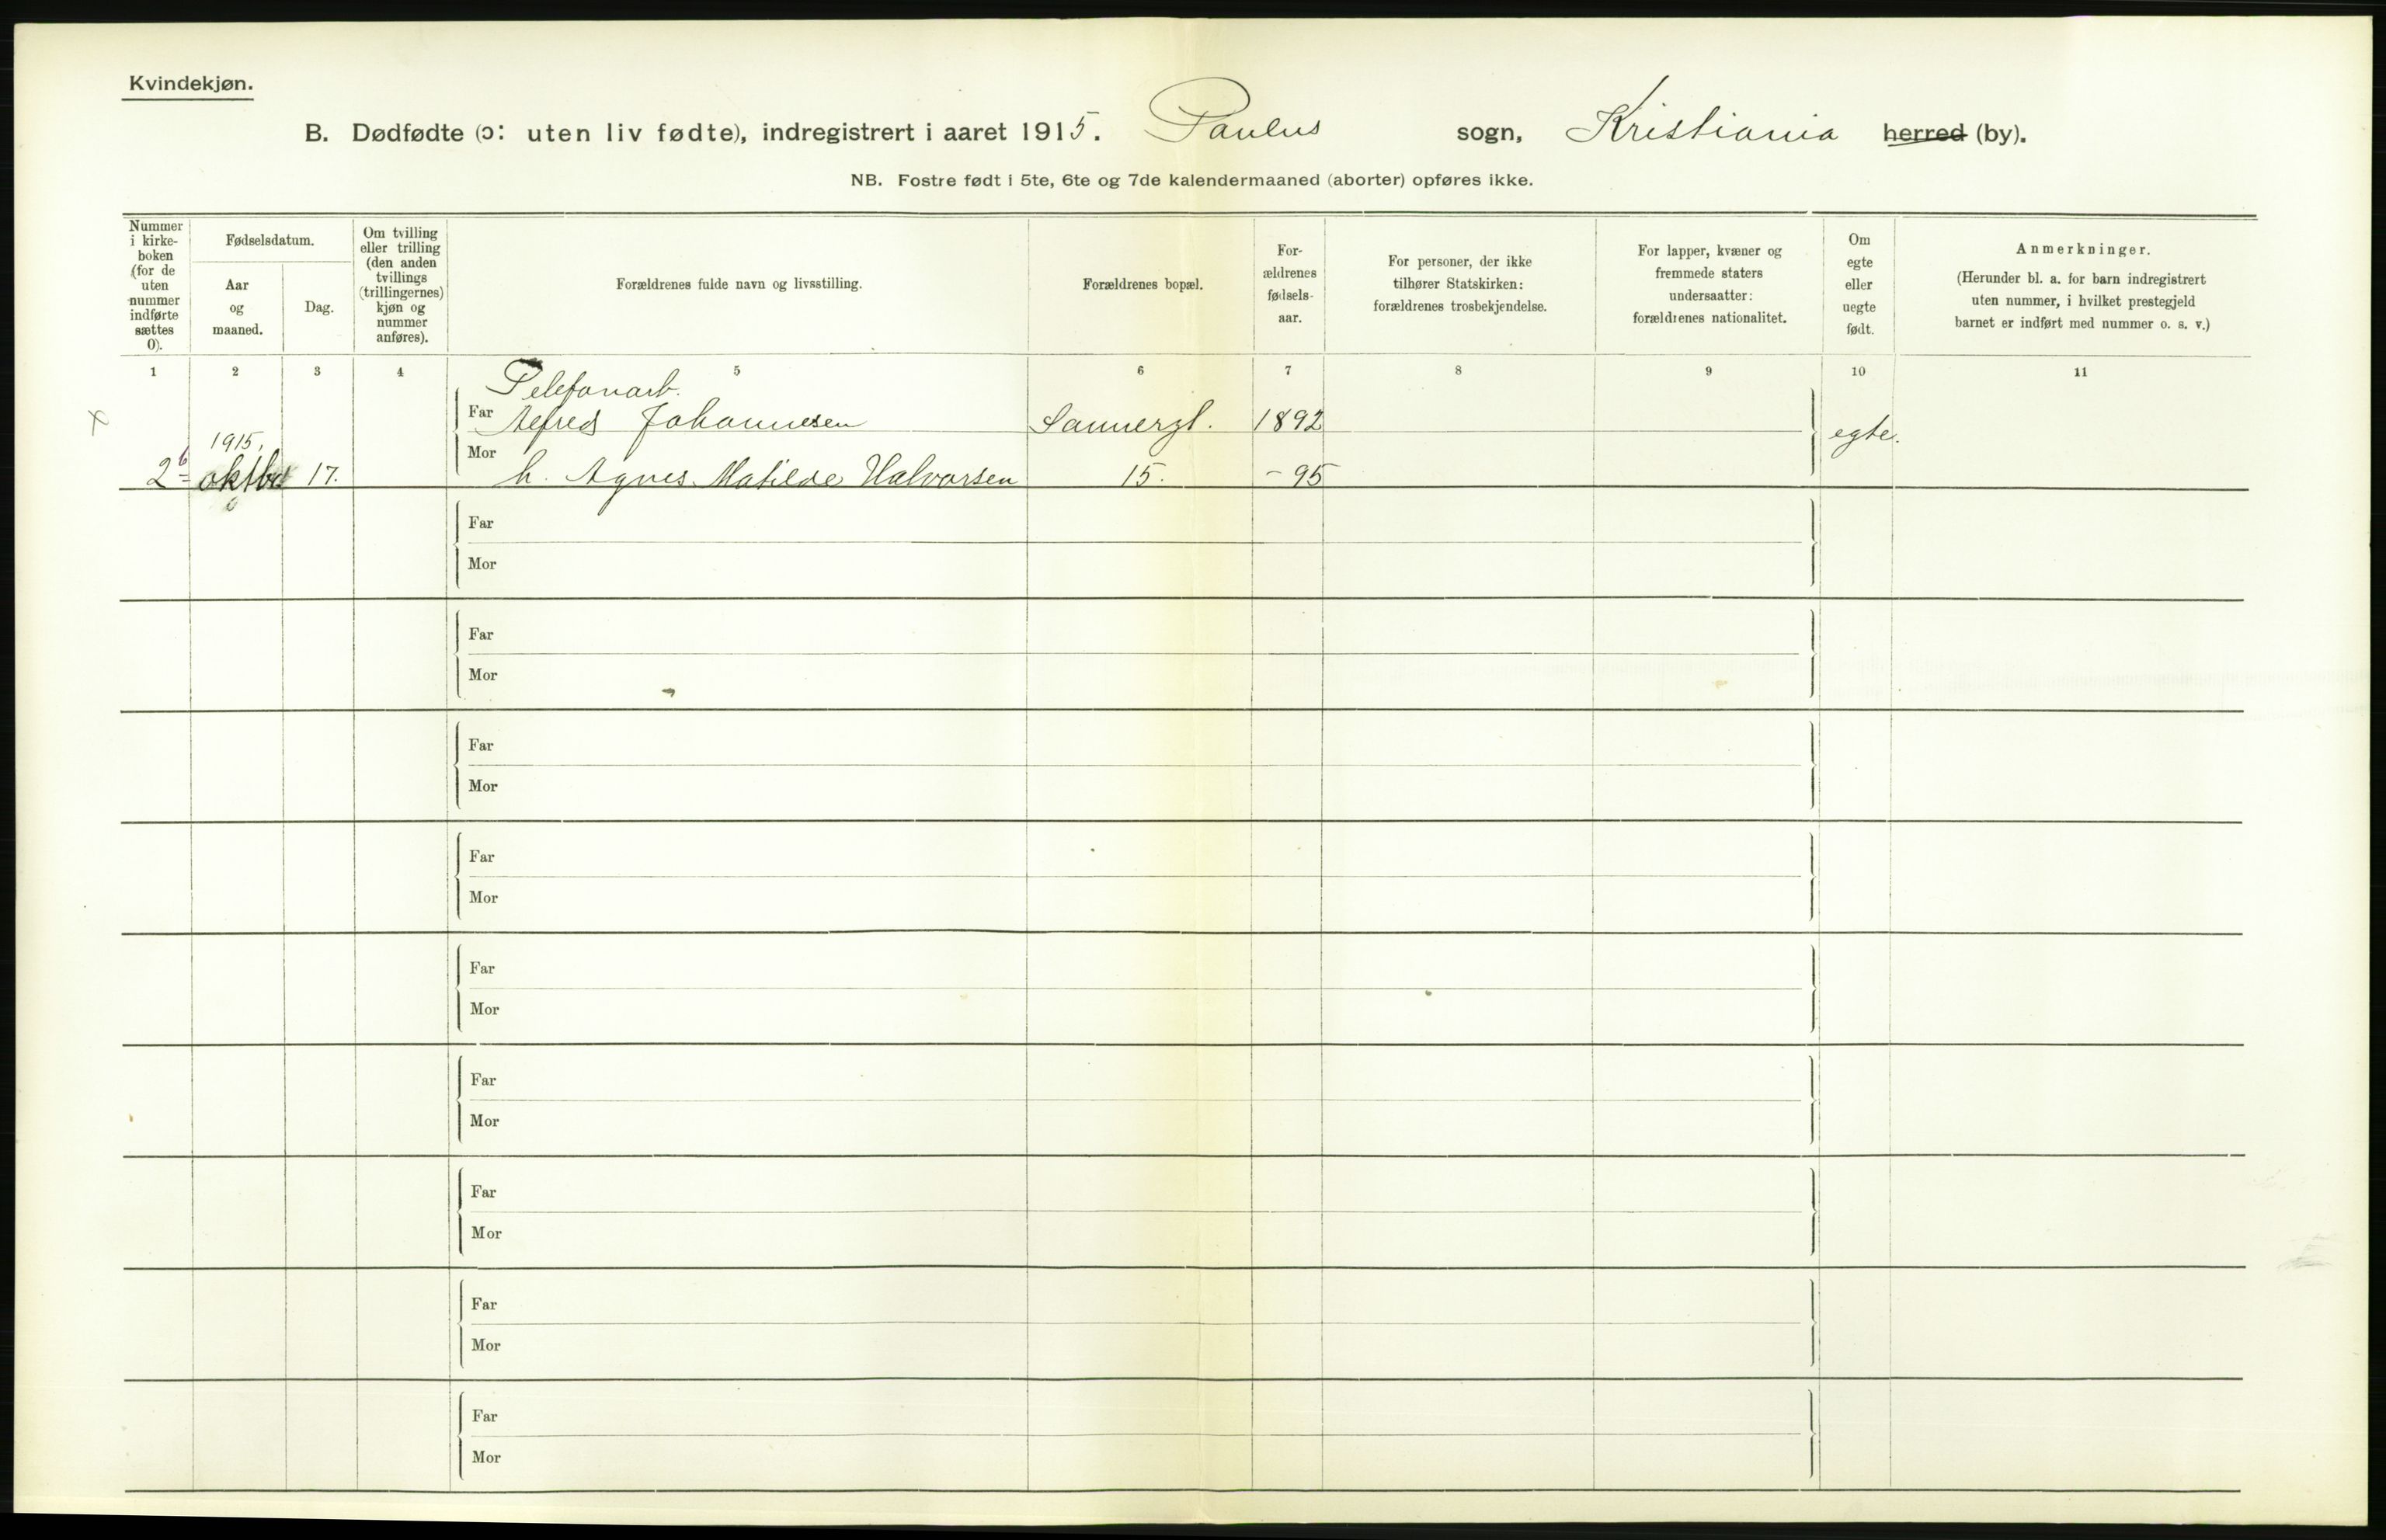 Kvindekjøn.
B. Dødfødte (ɔ: uten liv fødte), indregistrert i aaret 1915. Paulus sogn, Kristiania herred (by).
NB. Fostre født i 5te, 6te og 7de kalendermaaned (aborter) opføres ikke.
Nummer i kirke-boken (for de uten nummer indførte sættes 0).
Fødselsdatum.
Aar og maaned.
Dag.
Om tvilling eller trilling (den anden tvillings (trillingernes) kjøn og nummer anføres).
Forældrenes fulde navn og livsstilling.
Forældrenes bopæl.
For-ældrenes fødsels-aar.
For personer, der ikke tilhører Statskirken: forældrenes trosbekjendelse.
For lapper, kvæner og fremmede staters undersaatter: forældrenes nationalitet.
Om egte eller uegte født.
Anmerkninger.
(Herunder bl. a. for barn indregistrert uten nummer, i hvilket prestegjeld barnet er indført med nummer o. s. v.)
1 2 3 4 5 6 7 8 9 10 11
Telefonarb.
Far Alfred Johannesen Sannergt. 1892
1915, egte.
Mor
2 b oktbr 17. h. Agnes Matilde Halvorsen 15. - 95
Far
Mor
Far
Mor
Far
Mor
Far
Mor
Far
Mor
Far
Mor
Far
Mor
Far
Mor
Far
Mor